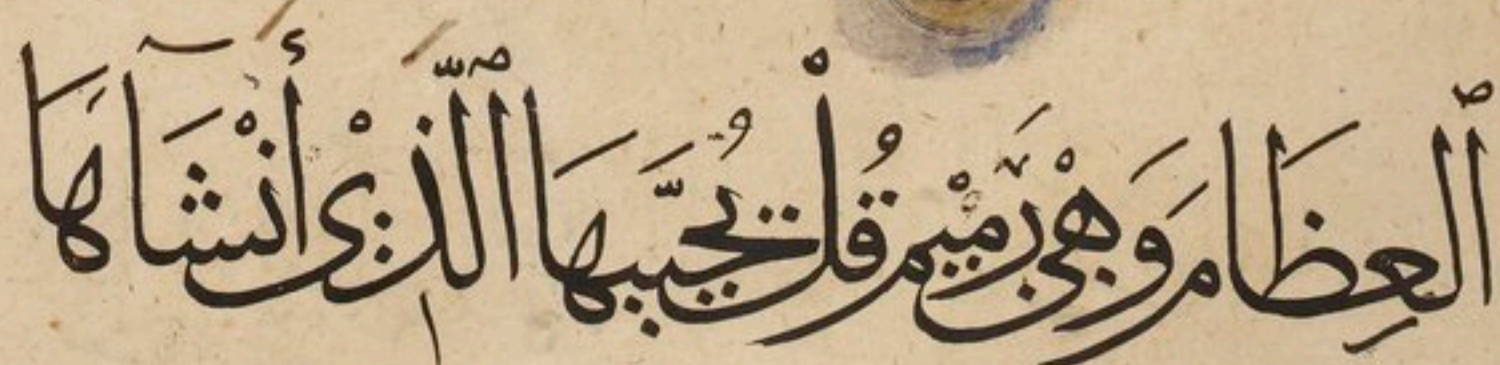 ٱلعِظَامَ وَهْيَ رَمِيْمٌ قُلْ يُحْيِيهَا ٱلَّذِيْ أَنْشَآهَا